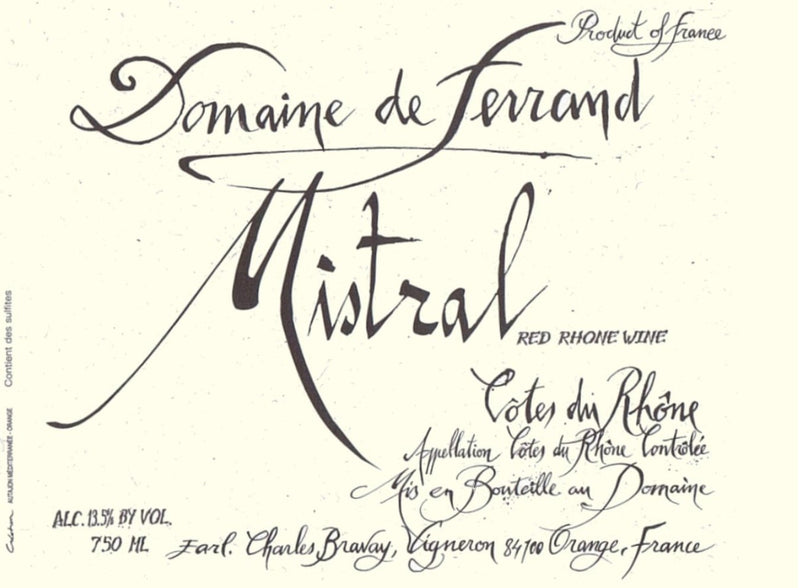 Product of France
Domaine de Ferrand
Mistral
RED RHONE WINE
Côtes du Rhône
Appellation Côtes du Rhône Contrôlée
Mis en Bouteille au Domaine
ALC. 13.5% BY VOL.
750 ML
Earl. Charles Bravay, Vigneron 84100 Orange, France
Contient des sulfites